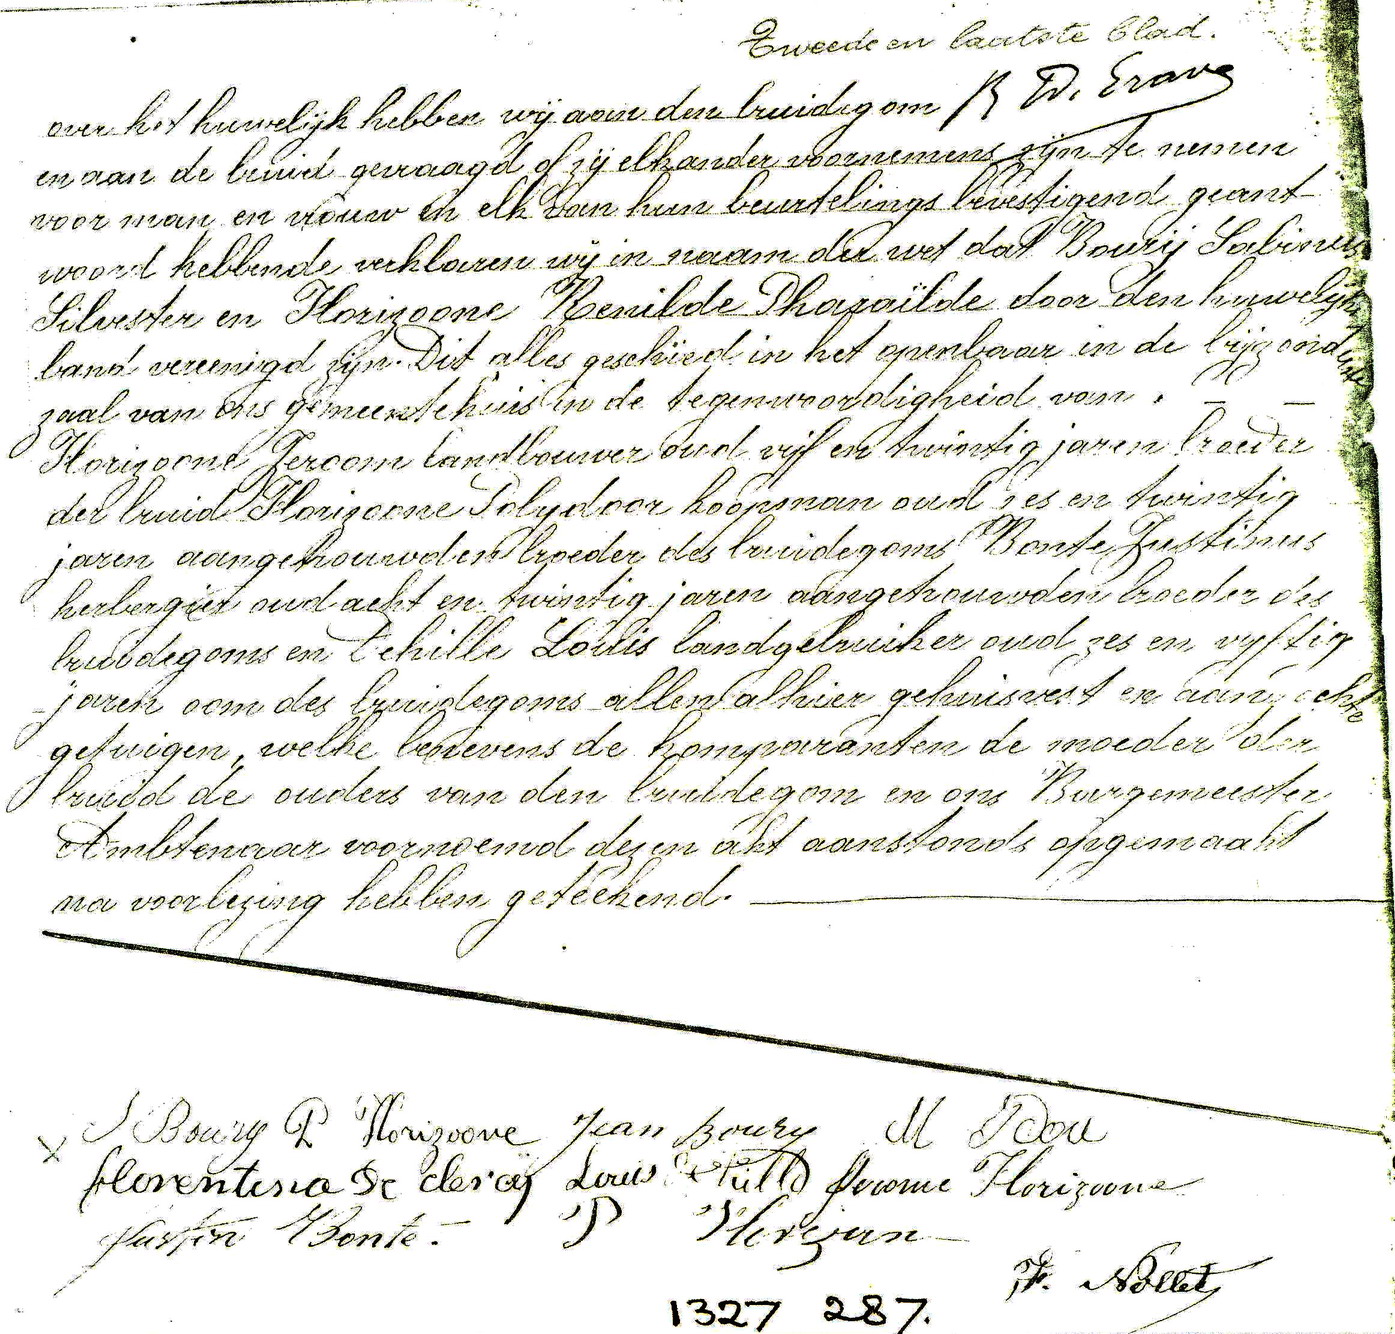 Tweede en laatste blad.
over het huwelijk hebben wij aan den bruidegom
en aan de bruid gevraagd of zij elkander voornemens zijn te nemen
voor man en vrouw en elk van hun beurtelings bevestigend geant-
woord hebbende verklaren wij in naam der wet dat Bourij Sabinus
Silvester en Florizoone Renilde Pharaïlde door den huwelijks
band vereenigd zijn. Dit alles geschied in het openbaar in de bijzonderste
zaal van ons gemeentehuis in de tegenwoordigheid van.
Florizoone Jeroom landbouwer oud vijf en twintig jaren broeder
der bruid Florizoone Polydoor koopman oud zes en twintig
jaren aangehouwden broeder des bruidegoms Bonte Justinus
herbergier oud acht en twintig jaren aangehouwden broeder des
bruidegoms en Dehille Louis landgebruiker oud zes en vyftig
jaren oom des bruidegoms allen alhier gehuisvest en aanzochte
getuigen, welke benevens de komparanten de moeder der
bruid de ouders van den bruidegom en ons Burgemeester
Ambtenaar voornoemd dezen akt aanstonds opgemaakt
na voorlezing hebben geteekend.
S Boury R Florizoone Jean Boury M
Florentina De clercq Louis Jerome Florizoone
Justin Bonte. P
F. Nollet
1327 287.